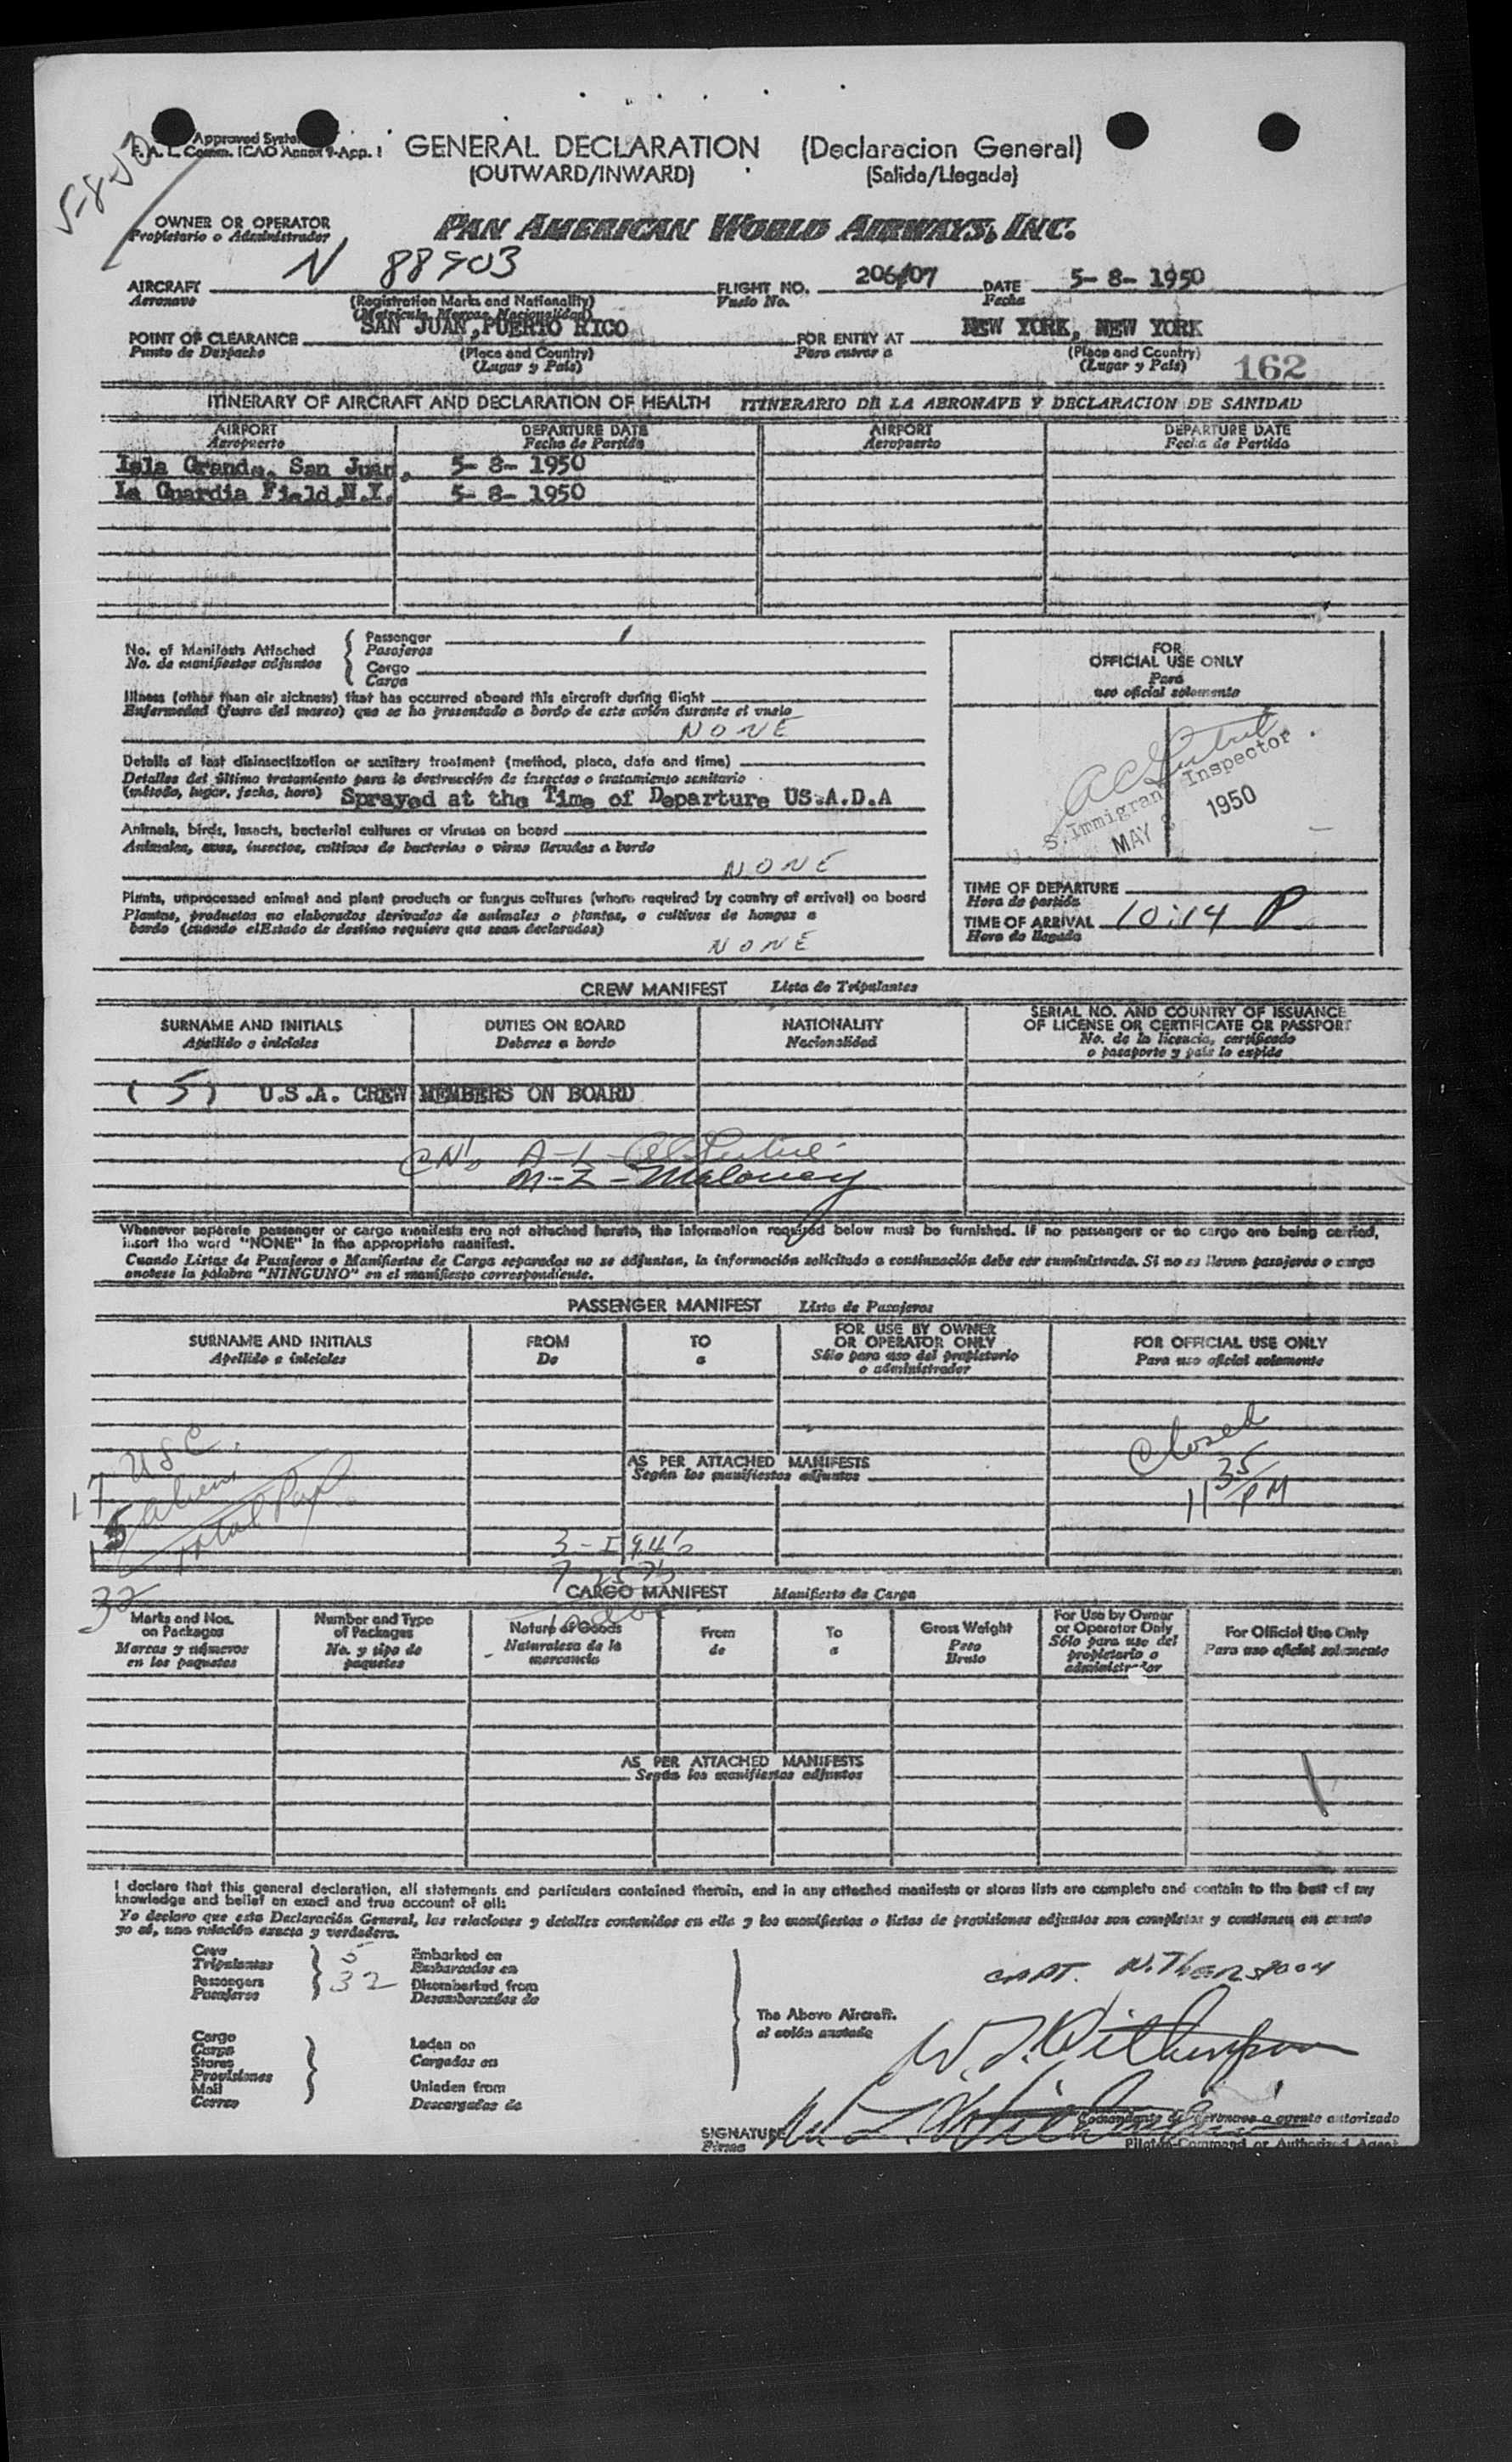 5-8-50
Approved System
F. A. L. Comm. ICAO Annex 9-App. 1
GENERAL DECLARATION (Declaracion General)
(OUTWARD/INWARD) (Salida/Llegada)
OWNER OR OPERATOR
Propietario o Administrador
PAN AMERICAN WORLD AIRWAYS, INC.
AIRCRAFT N 88903 FLIGHT NO. 206/07 DATE 5- 8- 1950
Aeronave (Registration Marks and Nationality) Vuelo No. Fecha
(Matricula, Marcas, Nacionalidad)
POINT OF CLEARANCE SAN JUAN, PUERTO RICO FOR ENTRY AT NEW YORK, NEW YORK
Punto de Despacho (Place and Country) Para entrar a (Place and Country)
(Lugar y Pais) (Lugar y Pais) 162
ITINERARY OF AIRCRAFT AND DECLARATION OF HEALTH ITINERARIO DE LA AERONAVE Y DECLARACION DE SANIDAD
AIRPORT DEPARTURE DATE AIRPORT DEPARTURE DATE
Aeropuerto Fecha de Partida Aeropuerto Fecha de Partida
Isla Grande, San Juan, 5- 8- 1950
La Guardia Field,N.Y. 5- 8- 1950
No. of Manifests Attached
No. de manifiestos adjuntos
Passenger 1
Pasajeros
Cargo
Carga
Illness (other than air sickness) that has occurred aboard this aircraft during flight
Enfermedad (fuera del mareo) que se ha presentado a bordo de este avión durante el vuelo
NONE
Details of last disinsectization or sanitary treatment (method, place, date and time)
Detalles del último tratamiento para la destrucción de insectos o tratamiento sanitario
(método, lugar, fecha, hora) Sprayed at the Time of Departure US.A.D.A
Animals, birds, insects, bacterial cultures or viruses on board
Animales, aves, insectos, cultivos de bacterias o virus llevados a bordo
NONE
Plants, unprocessed animal and plant products or fungus cultures (where required by country of arrival) on board
Plantas, productos no elaborados derivados de animales o plantas, o cultivos de hongos a
bordo (cuando elEstado de destino requiere que sean declarados)
NONE
FOR
OFFICIAL USE ONLY
Para
uso oficial solamente
S. Immigrant Inspector
MAY 8 1950
TIME OF DEPARTURE
Hora de partida
TIME OF ARRIVAL 10:14 P
Hora de llegada
CREW MANIFEST Lista de Tripulantes
SURNAME AND INITIALS DUTIES ON BOARD NATIONALITY SERIAL NO. AND COUNTRY OF ISSUANCE
OF LICENSE OR CERTIFICATE OR PASSPORT
Apellido e iniciales Deberes a bordo Nacionalidad No. de la licencia, certificado
o pasaporte y pais lo expide
( 5 ) U.S.A. CREW MEMBERS ON BOARD
CN's A-L-
M-Z- Maloney
Whenever separate passenger or cargo manifests are not attached hereto, the information required below must be furnished. If no passengers or no cargo are being carried,
insert the word "NONE" in the appropriate manifest.
Cuando Listas de Pasajeros o Manifiestos de Carga separados no se adjuntan, la información solicitada a continuación debe ser suministrada. Si no se lleven pasajeros o carga
anotese la palabra "NINGUNO" en el manifiesto correspondiente.
PASSENGER MANIFEST Lista de Pasajeros
SURNAME AND INITIALS FROM TO FOR USE BY OWNER
OR OPERATOR ONLY FOR OFFICIAL USE ONLY
Apellido e iniciales De a Sólo para uso del propietario
o administrador Para uso oficial solamente
Closed
11 35 PM
AS PER ATTACHED MANIFESTS
Según los manifiestos adjuntos
17 USC.
15 aliens
32 Total
3 - I 94's
CARGO MANIFEST Manifiesto de Carga
Marks and Nos.
on Packages
Marcas y números
en los paquetes
Number and Type
of Packages
No. y tipo de
paquetes
Nature of Goods
Naturaleza de la
mercancia
From
de
To
a
Gross Weight
Peso
Bruto
For Use by Owner
or Operator Only
Sólo para uso del
propietario o
administrador
For Official Use Only
Para uso oficial solamente
AS PER ATTACHED MANIFESTS
Según los manifiestos adjuntos
I declare that this general declaration, all statements and particulars contained therein, and in any attached manifests or stores lists are complete and contain to the best of my
knowledge and belief an exact and true account of all:
Yo declaro que esta Declaración General, las relaciones y detalles contenidos en ella y los manifiestos o listas de provisiones adjuntos son completas y contienen en cuanto
yo sé, una relación exacta y verdadera.
Crew 5 Embarked on
Tripulantes Embarcados en
Passengers 32 Disembarked from
Pasajeros Desembarcados de
Cargo
Carga
Stores
Provisiones
Mail
Correo
Laden on
Cargados en
Unladen from
Descargados de
The Above Aircraft.
el avión anotado
CAPT. Witherspoon
W. L. Witherspoon
SIGNATURE W. L. Witherspoon
Firma
Comandante de Aeronave o agente autorizado
Pilot-Command or Authorized Agent